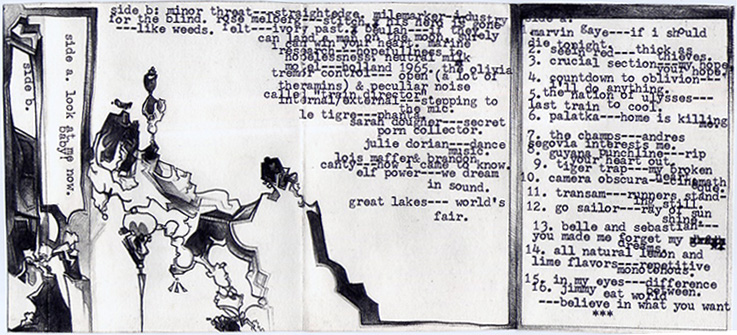 side b.
side a. look at me now.
baby
side b: minor threat---straightedge. milemarker-industry
for the blind. rose melberg---stitch. his hero is gone
---like weeds. felt---ivory past. beulah---if they
can land a man on the moon, surely
can win your heart. marine
research---hopefullness to
hopelessness. neutral milk
hotel---holland 1945. the olivia
tremor control--- open (a lot of
theramins) & peculiar noise
called train director.
internal/external---stepping to
the mic.
le tigre---phanta.
sarah dougher---secret
porn collector.
julie dorian---dance
music.
lois maffer& brandon
canty---how i came to know.
elf power---we dream
in sound.
great lakes--- world's
fair.
side a:
1. marvin gaye---if i should
die tonight.
2. seein red---thick as
thieves.
3. crucial section---my hope
your hope.
4. countdown to oblivion---
ill do anything.
5. the nation of ulysses---
last train to cool.
6. palatka---home is killing
me.
7. the champs---andres
segovia interests me.
8. guyana punchline---rip
your heart out.
9. tiger trap---my broken
heart.
10. camera obscura---
11. transam---runners stand-
ing still.
12. go sailor---ray of sun
shine.
13. belle and sebastian---
you made me forget my
dreams.
14. all natural lemon and
lime flavors---repetitive
monotonous.
15. in my eyes---difference
between.
16. jimmy eat world
---believe in what you want
***